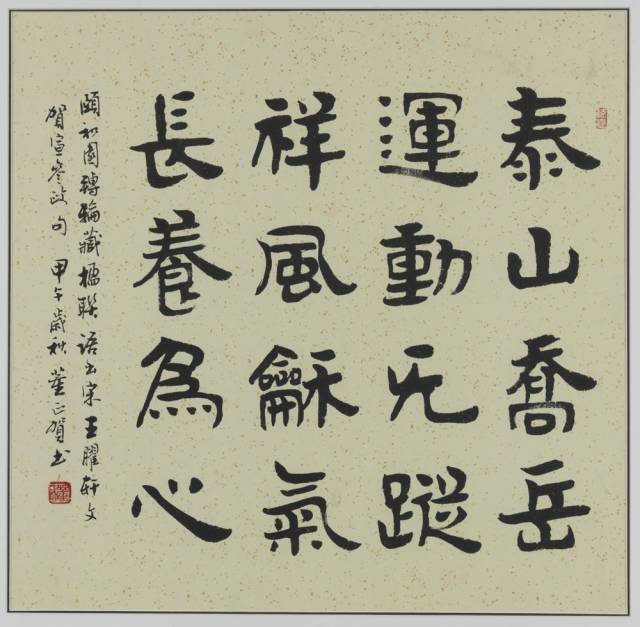 泰山喬岳
運動无蹤
祥風龢氣
長養為心
頤和園轉輪藏楹聯 語出宋王臞軒文
賀宣參政句 甲午歲秋 董正賀書